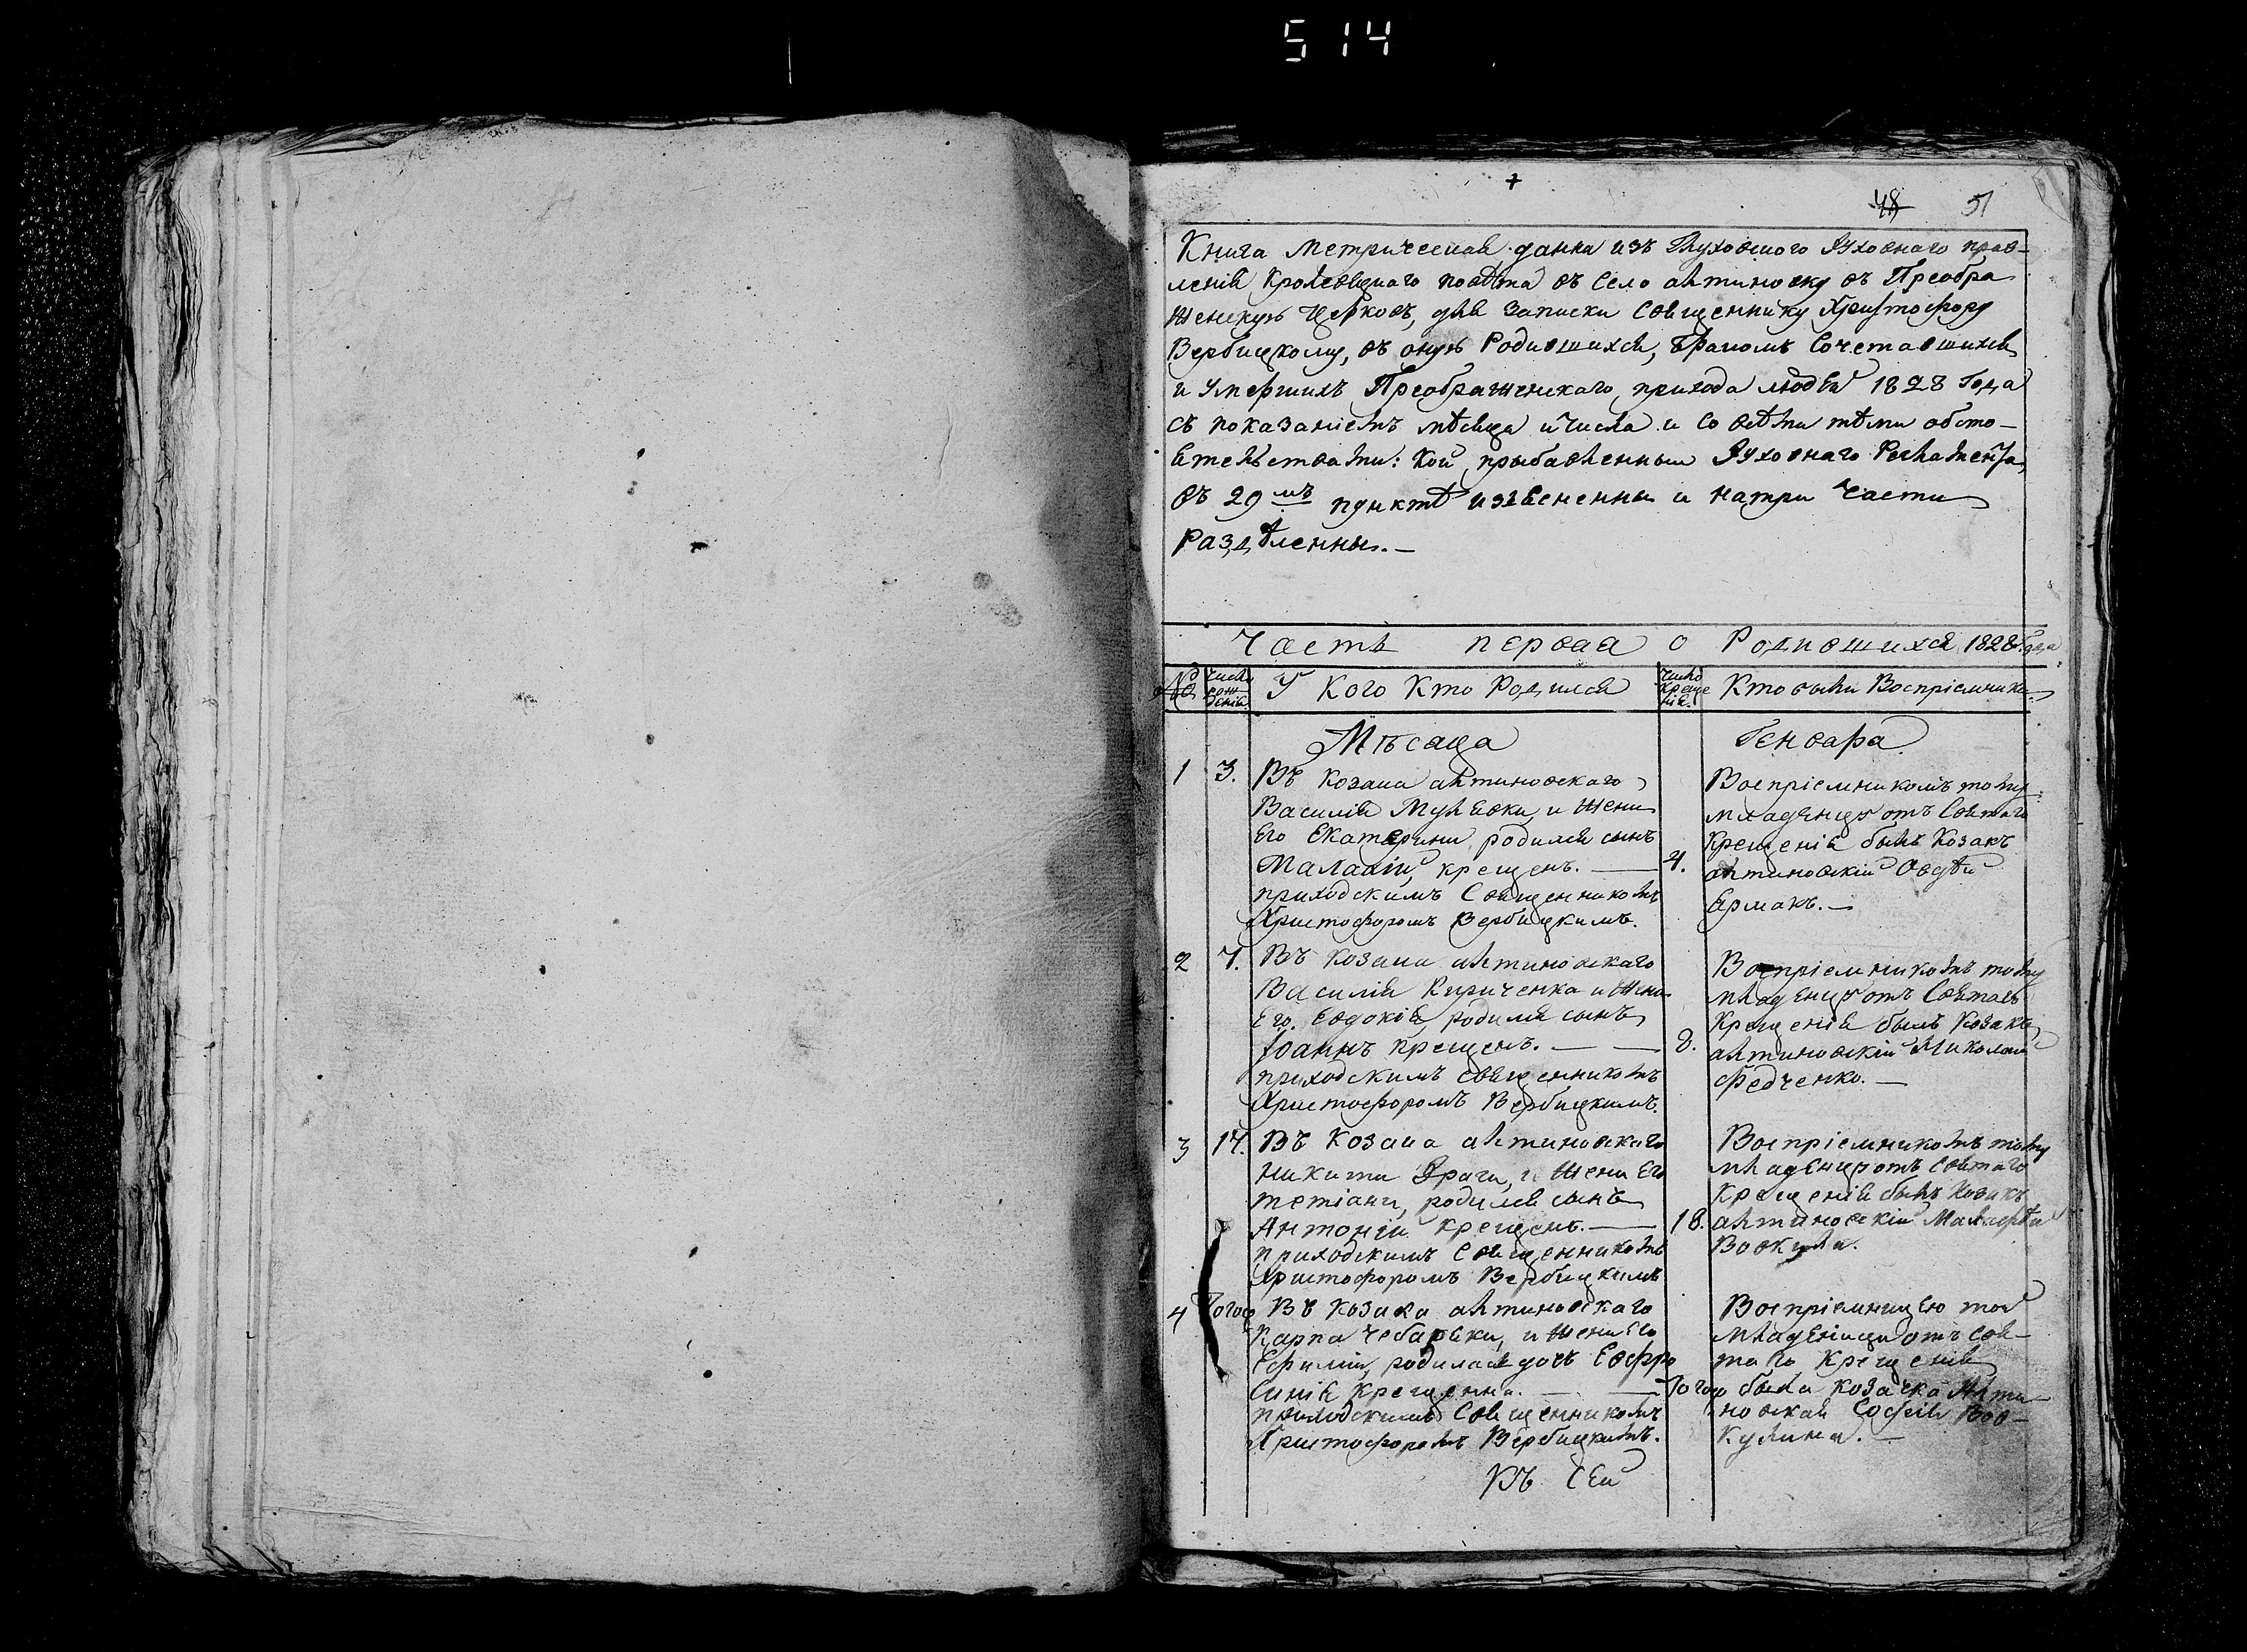 514
48 51
Книга Метрическая данна изъ Глуховского Духовнаго прав-
ленія Кролевецкаго повѣта въ Село Алтиновку въ Преобра
женскую Церковъ, для Записки Священнику Христофору
Вербицкому, въ оную Родившихся, Бракомъ Сочетавшихся
и Умершихъ Преображенскаго прихода людей 1828 Года
съ показаніемъ мѣсяца и Числа и со всѣми тѣми обсто-
ятельствами: Кои прыбавленным Духовнаго Регламента,
въ 29мъ пунктѣ изъясненны и на три Части
Раздѣленны.—
Часть первая о Родившихся 1828 Года
№ Число рождения У Кого Кто Родился Число Крещения Кто были Воспріемники
Мѣсяца Генваря
1 3. Въ Козака алтиновского
Василія Мулявки, и Жени
Его Екатерини, родился сынъ
Малахій, крещенъ. — 4.
приходскимъ Священникомъ
Христофоромъ Вербицкимъ.
Воспріемникомъ тому
младенцу отъ Святаго
Крещенія былъ Козакъ
алтиновскій Овдѣй
Ермакъ.—
2 7. Въ Козака алтиновскаго
Василія Кириченка и Жени
Его. Евдокія, родился сынъ
Іоаннъ крещенъ. — — 8.
приходскимъ священникомъ
Христофоромъ Вербицкимъ.
Воспріемникомъ тому
младенцу отъ Святаго
Крещенія былъ Козакъ
алтиновскій Миколай
Федченко.—
3 17. Въ Козака алтиновскаго
Никити Драги, и Жени Его
тетіани, родился сынъ
Антоній крещенъ. — 18.
приходскимъ Священникомъ
Христофоромъ Вербицкимъ
Воспріемникомъ тому
младенцу отъ Святаго
Крещенія былъ Козакъ
алтиновскій
Вовкула.
4 Того Въ Козака алтиновскаго
Карпа Чебаряки, и Жени Его
Ефиміи, родилася дочь Евфро
синія Крещенна. — — Того
приходскимъ Священникомъ
Христофоромъ Вербицкимъ.
Воспріемницею той
младеници отъ Свя-
таго Крещенія
была козачка Алти-
новская Софія Вов-
кулина.—
Въ Сей